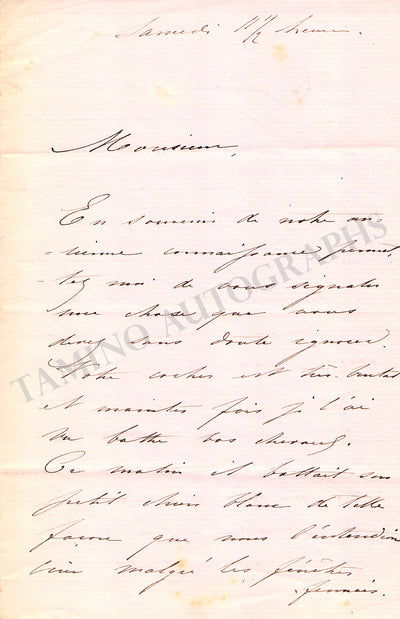 Samedi 11 1/2 heure.
Monsieur,
En souvenir de notre an-
-cienne connaissance permet-
tez moi de vous signaler
une chose que vous
devez sans doute ignorer.
Votre cocher est très brutal
et maintes fois je l'ai
vu battre vos chevaux.
Ce matin il battait son
petit chien blanc de telle
façon que nous l'entendions
crier malgré les fenêtres
fermées.
TAMINO AUTOGRAPHS